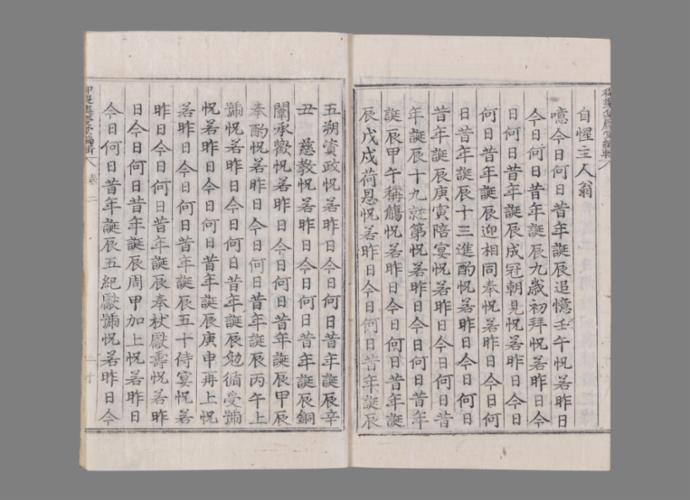 自惺主人翁
噫今日何日昔年誕辰追憶壬午怳若昨日
今日何日昔年誕辰九歲初拜怳若昨日今
日何日昔年誕辰成冠朝見怳若昨日今日
何日昔年誕辰迎相同奉怳若昨日今日何
日昔年誕辰十三進酌怳若昨日今日何日
昔年誕辰庚寅陪宴怳若昨日今日何日昔
年誕辰十九就第怳若昨日今日何日昔年
誕辰甲午稱觴怳若昨日今日何日昔年誕
辰戊戌荷恩怳若昨日今日何日昔年誕辰
五朔資政怳若昨日今日何日昔年誕辰辛
丑 慈教怳若昨日今日何日昔年誕辰銅
闈承歡怳若昨日今日何日昔年誕辰甲辰
奉酌怳若昨日今日何日昔年誕辰丙午上
號怳若昨日今日何日昔年誕辰勉循受號
怳若昨日今日何日昔年誕辰庚申再上怳
若昨日今日何日昔年誕辰五十侍宴怳若
昨日今日何日昔年誕辰奉杖獻壽怳若昨
日今日何日昔年誕辰周甲加上怳若昨日
今日何日昔年誕辰五紀獻號怳若昨日今
卷二